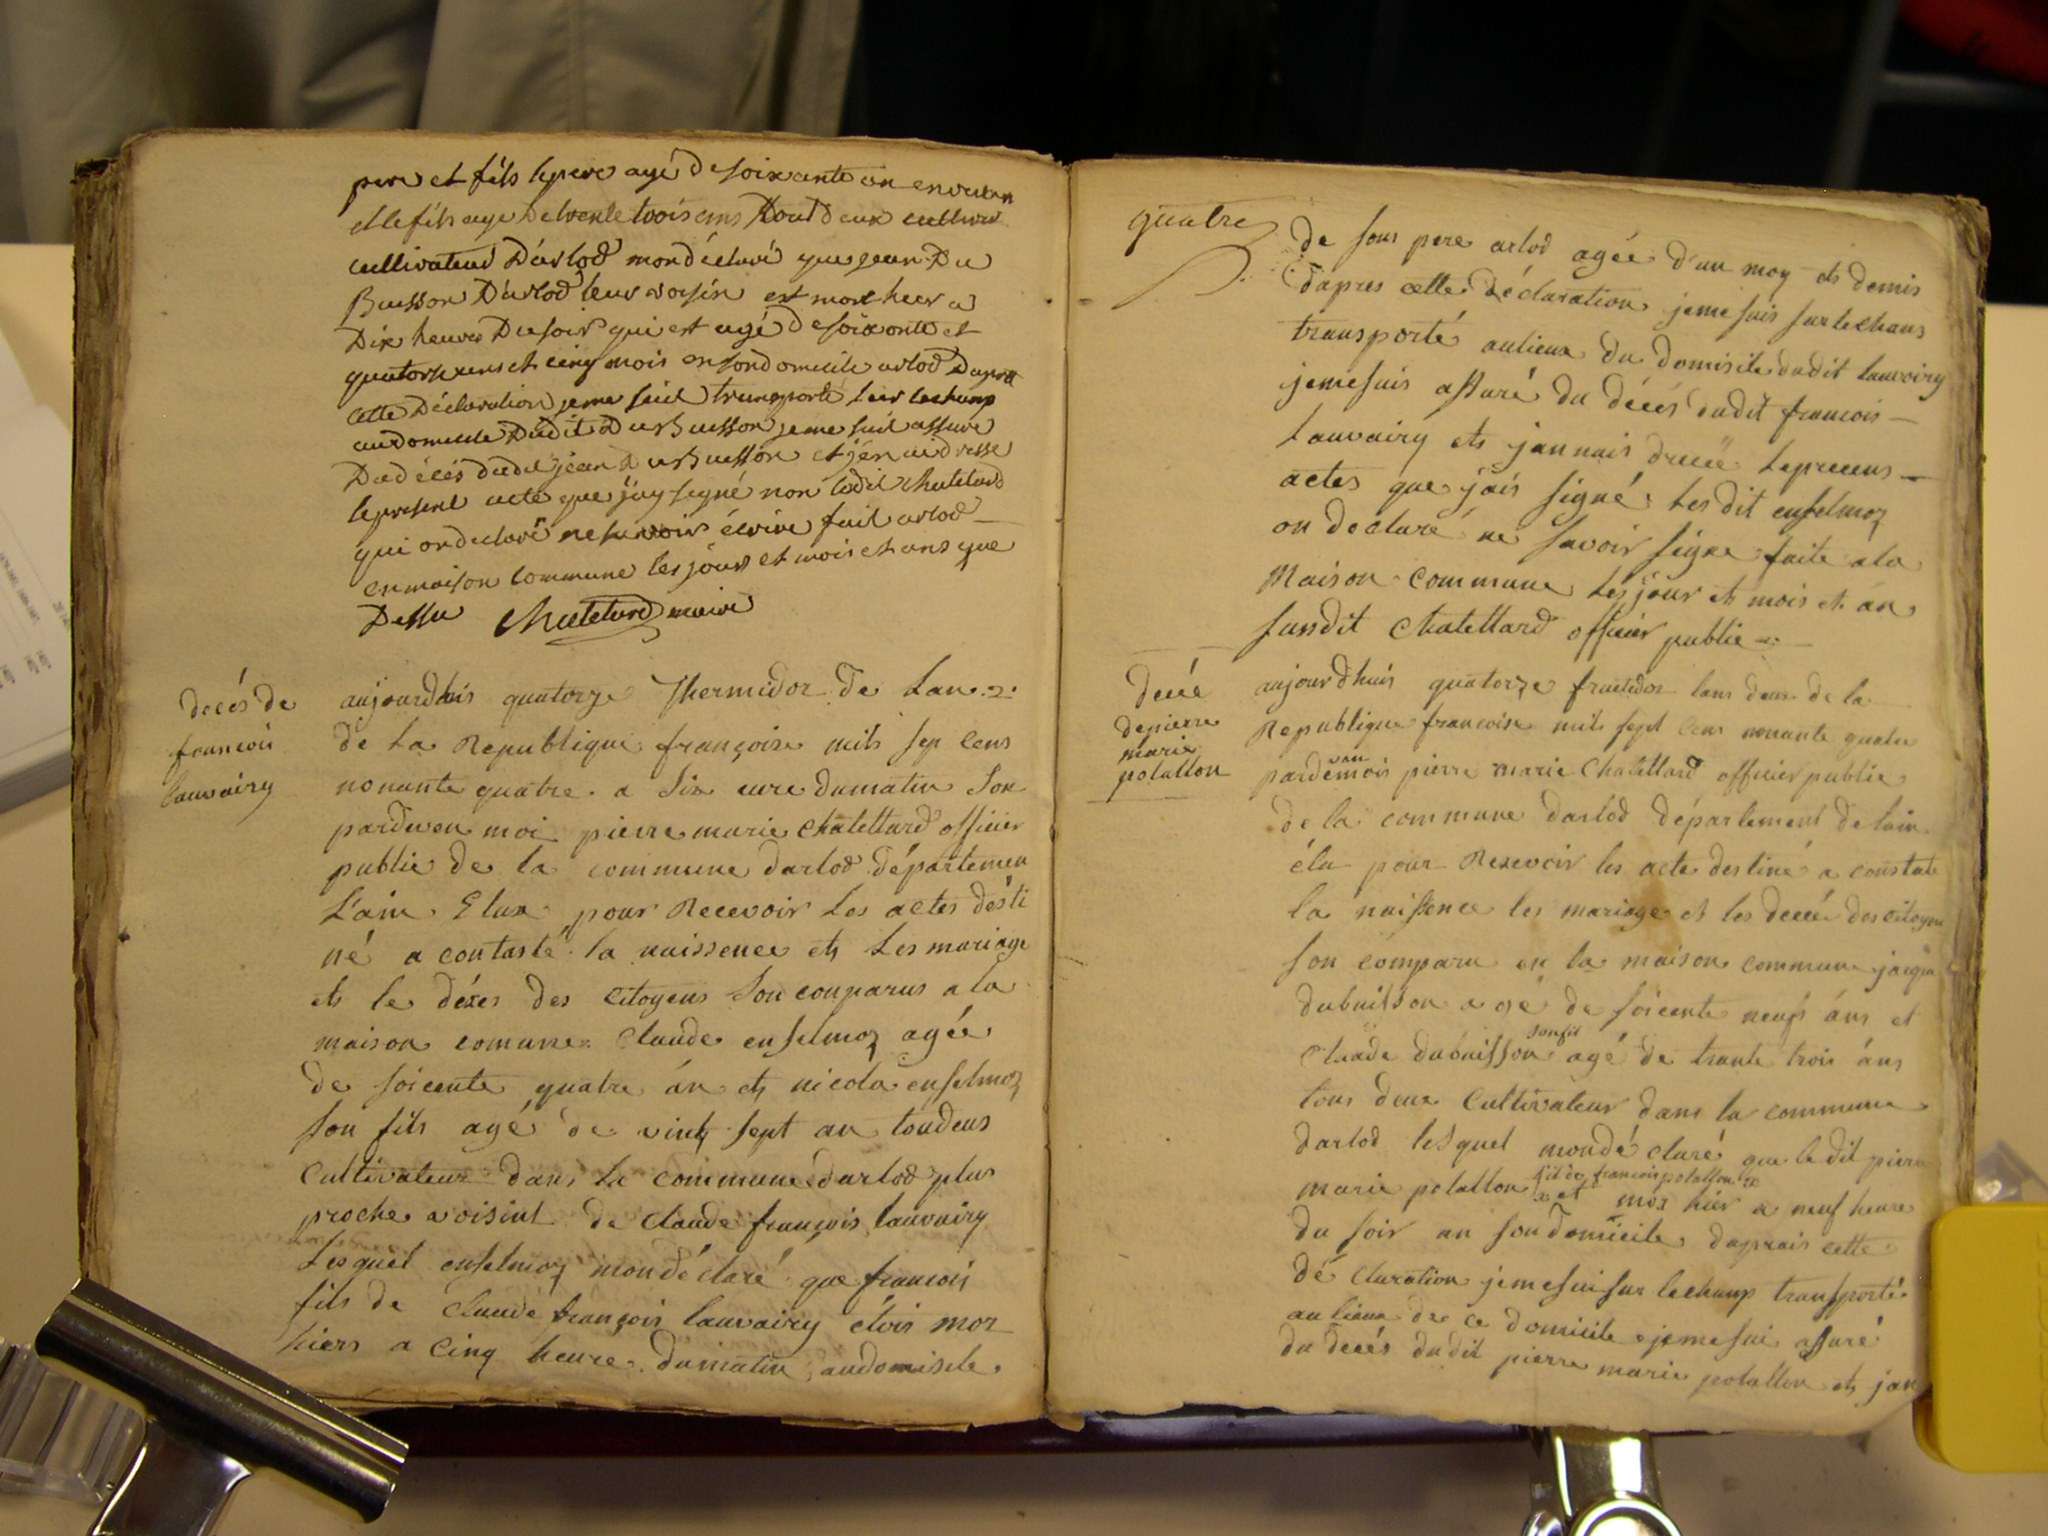 pere et fils le pere agé de soixante un environ
et le fils age de trente trois ans tout deux
cultivateur D'arlod mon déclaré que jean Du
Buisson D'arlod leur voisin est mort hier a
Dix heures Du soir qui est agé de soixante et
quatorse ans et cinq mois en son domicile arlod Dapres
cette Déclaration je me suis transporté sur le champ
au domicile Dudit duBuisson je me suis assure
Du décés dudit jean duBuisson et j'en ai dresse
le present acte que j'ay signé non ledit Chatelard
qui on declaré ne savoir écrire fait arlod
en maison commune les jours et mois et ans que
Dessu Chatelard maire
decés de
francois
lauvairy
aujourdhuis quatorze Thermidor de Lan .2.
de La Republique françoise mils sep cens
nonante quatre a Six eure dumatin Son
pardevan moi pierre marie Chalettard officier
public de la commune darlod départemen
L'ain Elux pour Recevoir Les actes désti
né a contasté la naissence ets Les mariage
ets le déxes des Citoyens Son conparus a la
maison comune Claude enselmoz agée
de soicente quatre án ets nicola enselmoz
son fils agé de vint sept an toudeus
Cultivateur dans La commune darlod plus
proche voisint de claude françois lauvairy
Lesquel enselmoz mondéclaré que francois
fils de Claude françois lauvairy étois mor
hiers a Cinq heure dumatin audomisile
quatre
De sons pere arlod agée d'un moy ets demis
Dapres cette Déclaration jemesuis surlechans
transporté aulieux du domisile dudit lauvoiry
jemesuis assuré du décés dudit francois
Lauvairy ets jannais dreée Lepreeens
actes que jais signé Les dit enselmoz
on declaré ne savoir signe faite ala
Maison commune Les jour ets mois et an
susdit Chalettard officier public
decée
depierre
marie
potallon
aujourdhuis quatorze fructidor lans deux de la
Republique francoise mil sept cens nonante quatre
van
pardemois pierre marie Chalettard officier public
de la commune darlod département de lain
élu pour Rexevoir les acte destiné a constate
la naissence les mariage et les decée des citoyen
son comparu en la maison commune jacque
dubuisson agé de soicente neufs áns et
sonfils
Claude dubuisson agé de trante trois áns
tous deux Cultivateur dans la commune
darlod lesquel mondé claré que le dit pierre
fils de francois potallon
marie potallon et mor hier a neuf heure
du soir an son domicile daprais cette
dé claration jemesui sur lechamp transporté
au lieux de ce domicile jemesui assuré
du decés dudit pierre marie potallon ets jan